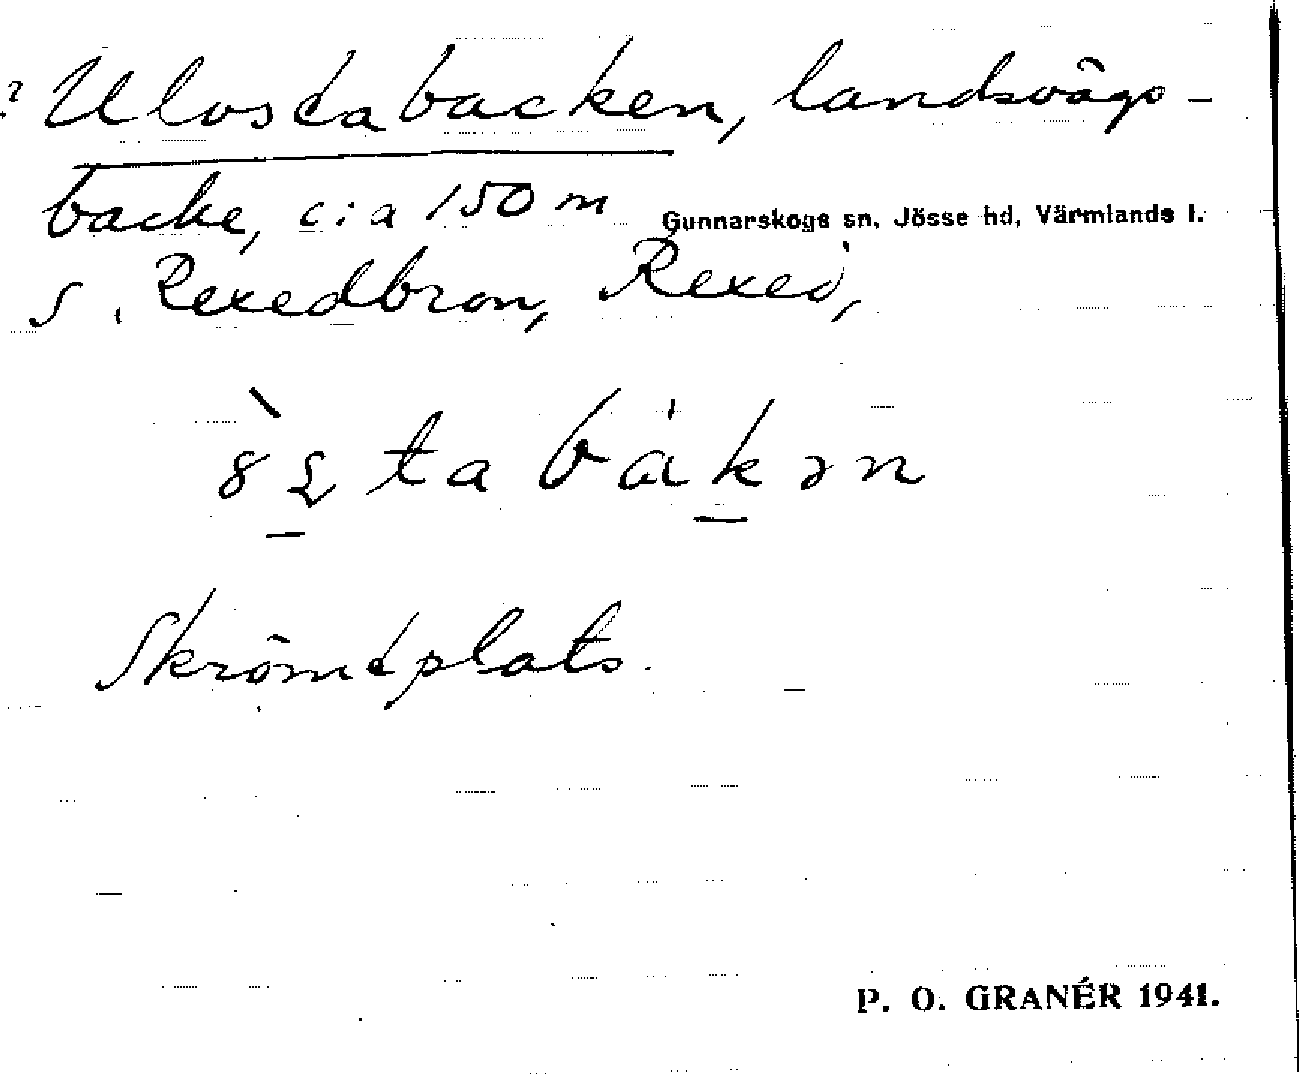 ? Ulvstabacken, landsvägs-
backe, c:a 150 m
Gunnarskogs sn, Jösse hd, Värmlands l.
s. Rexedbron, Rexed,
backən
Skrömtplats.
P. O. GRANÉR 1941.